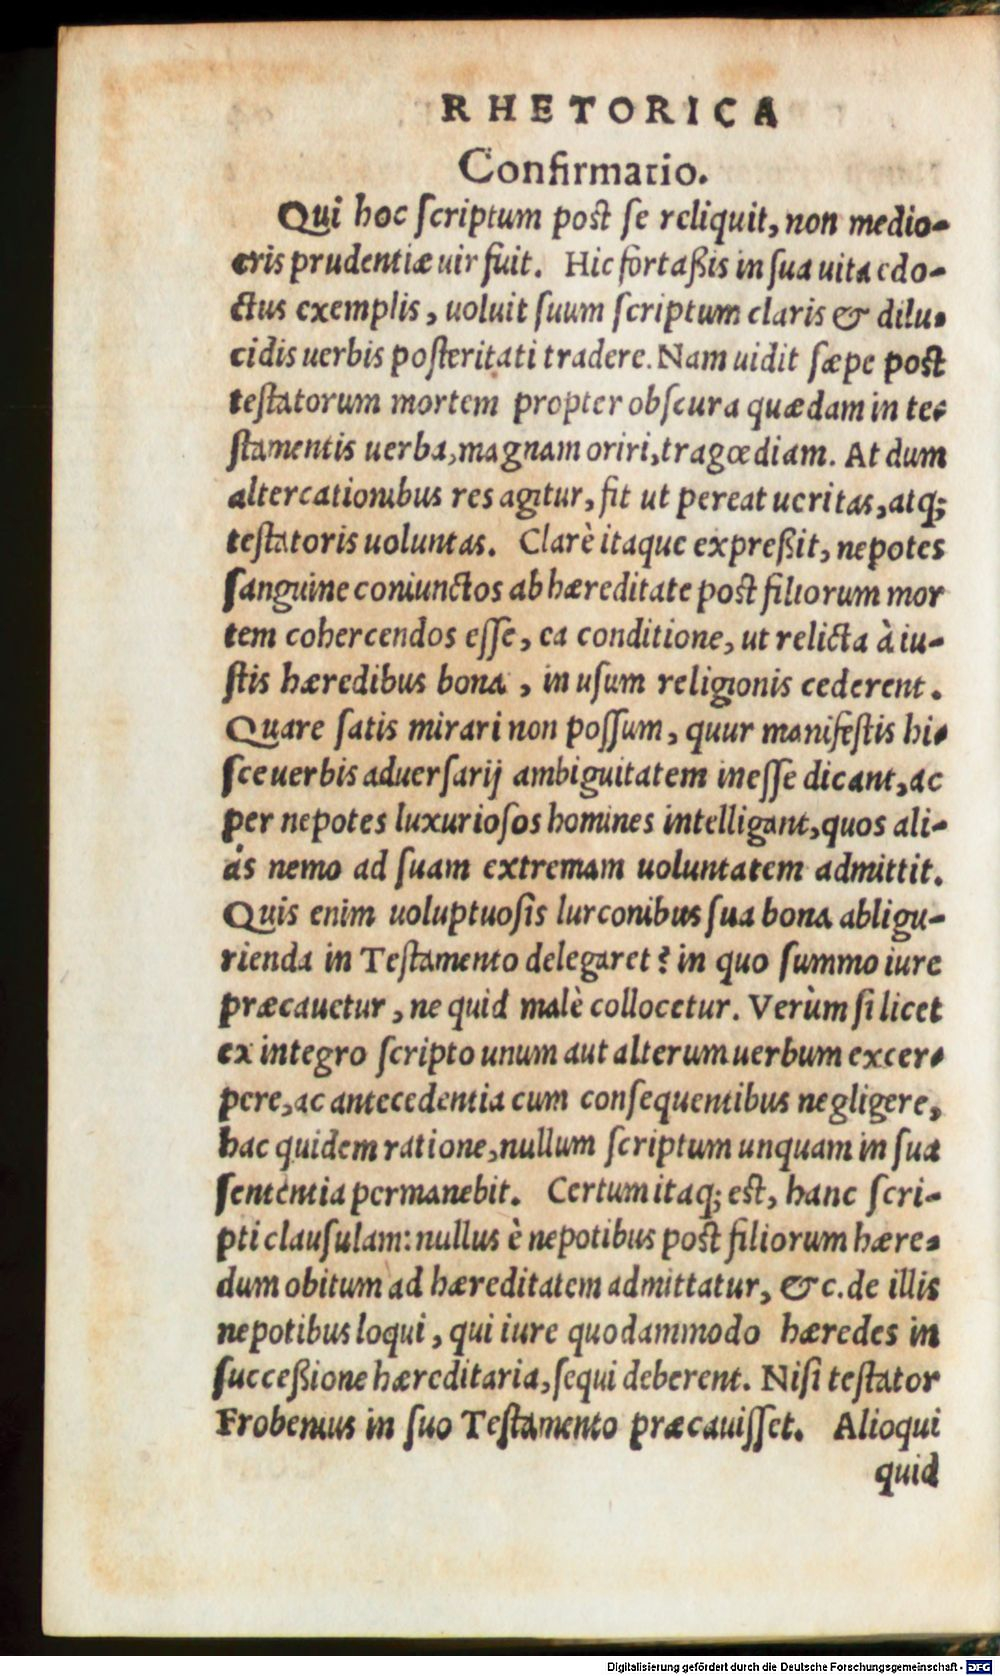 RHETORICA
Confirmatio.
Qui hoc ſcriptum poſt ſe reliquit, non medio-
cris prudentiæ uir fuit. Hic fortaßis in ſua uita edo-
ctus exemplis, uoluit ſuum ſcriptum claris & dilu-
cidis uerbis poſteritati tradere. Nam uidit ſæpe poſt
teſtatorum mortem propter obſcura quædam in te-
ſtamentis uerba, magnam oriri, tragœdiam. At dum
altercationibus res agitur, fit ut pereat ueritas, atq;
teſtatoris uoluntas. Clarè itaque expreßit, nepotes
ſanguine coniunctos ab hæreditate poſt filiorum mor
tem cohercendos eſſe, ea conditione, ut relicta à iu-
ſtis hæredibus bona, in uſum religionis cederent.
Quare ſatis mirari non poſſum, quur manifeſtis hi-
ſce uerbis aduerſarij ambiguitatem ineſſe dicant, ac
per nepotes luxurioſos homines intelligant, quos ali-
ás nemo ad ſuam extremam uoluntatem admittit.
Quis enim uoluptuoſis lurconibus ſua bona abligu-
rienda in Teſtamento delegaret? in quo ſummo iure
præcauetur, ne quid malè collocetur. Verùm ſi licet
ex integro ſcripto unum aut alterum uerbum excer-
pere, ac antecedentia cum conſequentibus negligere,
hac quidem ratione, nullum ſcriptum unquam in ſua
ſententia permanebit. Certum itaq; eſt, hanc ſcri-
pti clauſulam: nullus è nepotibus poſt filiorum hære-
dum obitum ad hæreditatem admittatur, &c. de illis
nepotibus loqui, qui iure quodammodo hæredes in
ſucceßione hæreditaria, ſequi deberent. Niſi teſtator
Frobenius in ſuo Teſtamento præcauiſſet. Alioqui
quid
Digitalisierung gefördert durch die Deutsche Forschungsgemeinschaft - DFG